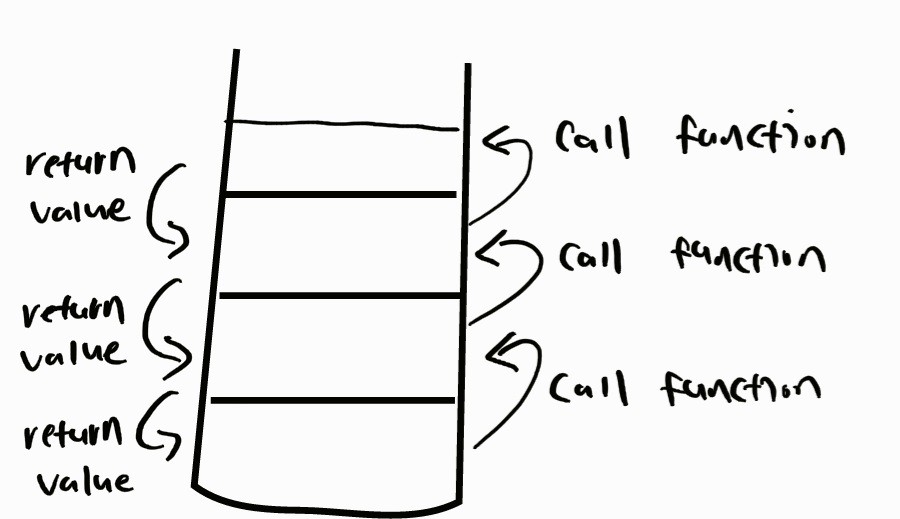 return
value
return
value
return
value
call function
call function
call function